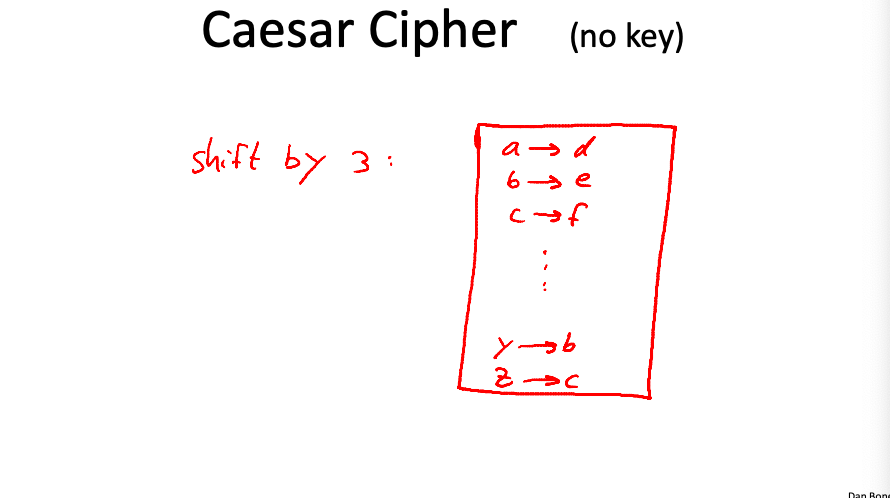 Caesar Cipher (no key)
shift by 3 :
a → d
b → e
c → f
⋮
y → b
z → c